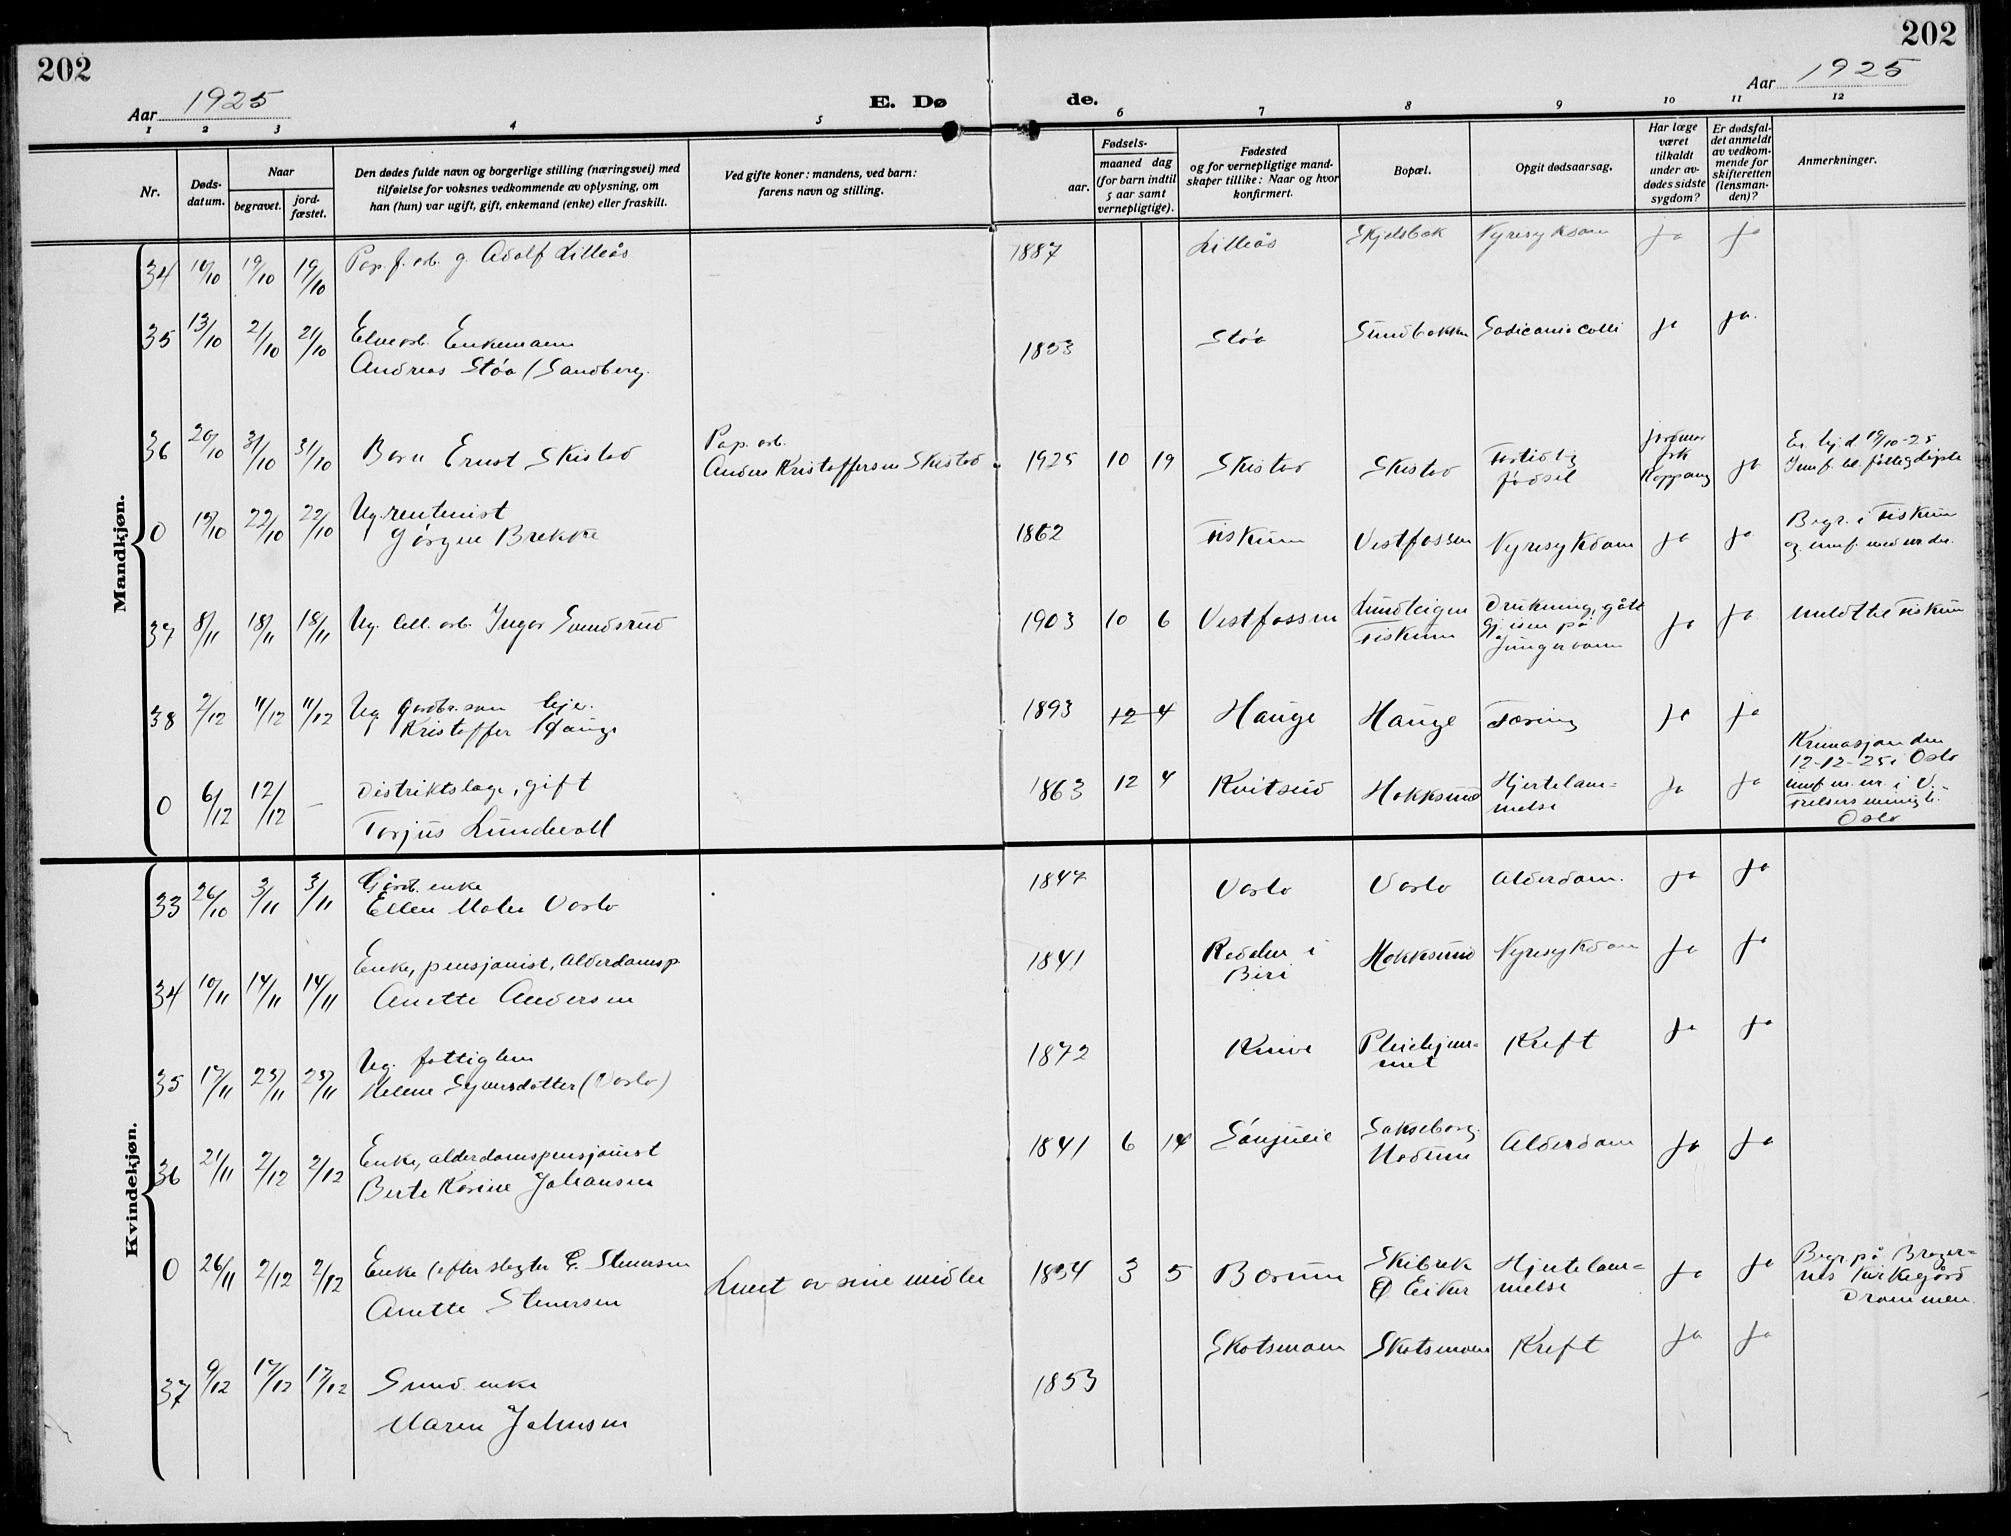 202
202
Aar 1925
Aar 1925
E. Dø
de.
1 2 3 4 5 6 7 8 9 10 11 12
Nr.
Døds-
datum.
Naar
begravet.
jord-
fæstet.
Den dødes fulde navn og borgerlige stilling (næringsvei) med
tilføielse for voksnes vedkommende av oplysning, om
han (hun) var ugift, gift, enkemand (enke) eller fraskilt.
Ved gifte koner: mandens, ved barn:
farens navn og stilling.
Fødsels-
aar.
maaned dag
(for barn indtil
5 aar samt
vernepligtige).
Fødested
og for vernepligtige mand-
skaper tillike: Naar og hvor
konfirmert.
Bopæl.
Opgit dødsaarsag.
Har læge
været
tilkaldt
under av-
dødes sidste
sygdom?
Er dødsfal-
det anmeldt
av vedkom-
mende for
skifteretten
(lensman-
den)?
Anmerkninger.
Mandkjøn.
34 10/10 19/10 19/10 Pap. f. arb. g. Adolf Lilleås 1887 Lilleås Skjelsbæk Nyresykdom Ja Ja
35 13/10 21/10 21/10 Elvearb. Enkemann
Andreas Støa / Sandberg. 1853 Støa Sundbakken ja ja.
36 20/10 31/10 31/10 Barn Ernst Skistad
Pap. arb.
Anders Kristoffersen Skistad 1925 10 19 Skistad Skistad For tidlig
fødsel
jordmor
frk
Koppang ja
Er hj.d. 19/10-25
0 15/10 22/10 22/10 Ug. rentenist
Jørgen Brekke 1862 Fiskum Vestfossen Nyresykdom ja ja
Begr. i Fiskum
37 8/11 18/11 18/11 Ug. cell. arb. Ingar Evensrud 1903 10 6 Vestfossen Lundteigen
Fiskum
Drukning, gått
gj. isen på
ja ja meldt til Fiskum
38 2/12 11/12 11/12 Ug. gårdbr.søn
Kristoffer Hauge 1893 12 4 Hauge Hauge Tæring ja ja
0 6/12 12/12 – Distriktslæge, gift
Torjus Lundevall 1863 12 4 Kvitseid Hokksund Hjertelam-
melse ja ja
Kremasjon den
12-12-25 i Oslo
Oslo
Kvindekjøn.
33 26/10 3/11 3/11 Gårdb. enke
Ellen Marie Varlo 1847 Varlo Varlo Alderdom. ja ja
34 10/11 14/11 14/11 Enke, pensjonist, alderdomsp
Anette Andersen 1841 Redalen i
Biri Hokksund Nyresykdom ja ja
35 17/11 23/11 23/11 Ug. fattiglem
Helene Syversdatter (Varlo) 1872 Knive Pleiehjem-
met Kreft ja ja
36 21/11 2/12 2/12 Enke, alderdomspensjonist
Berte Karine Johansen 1841 6 14 Modum Alderdom ja ja
0 26/11 2/12 2/12 Enke efter slagter G. Stenersen
Anette Stenersen
Levet av sine midler 1834 3 5 Bærum Skibrek
Ø. Eiker Hjertelam-
melse ja ja
Begr. på Brager-
nes kirkegård
Drammen.
37 9/12 17/12 17/12 Smed. enke
Maren Johnsen 1853 Skotsmoen Skotsmoen Kreft ja ja